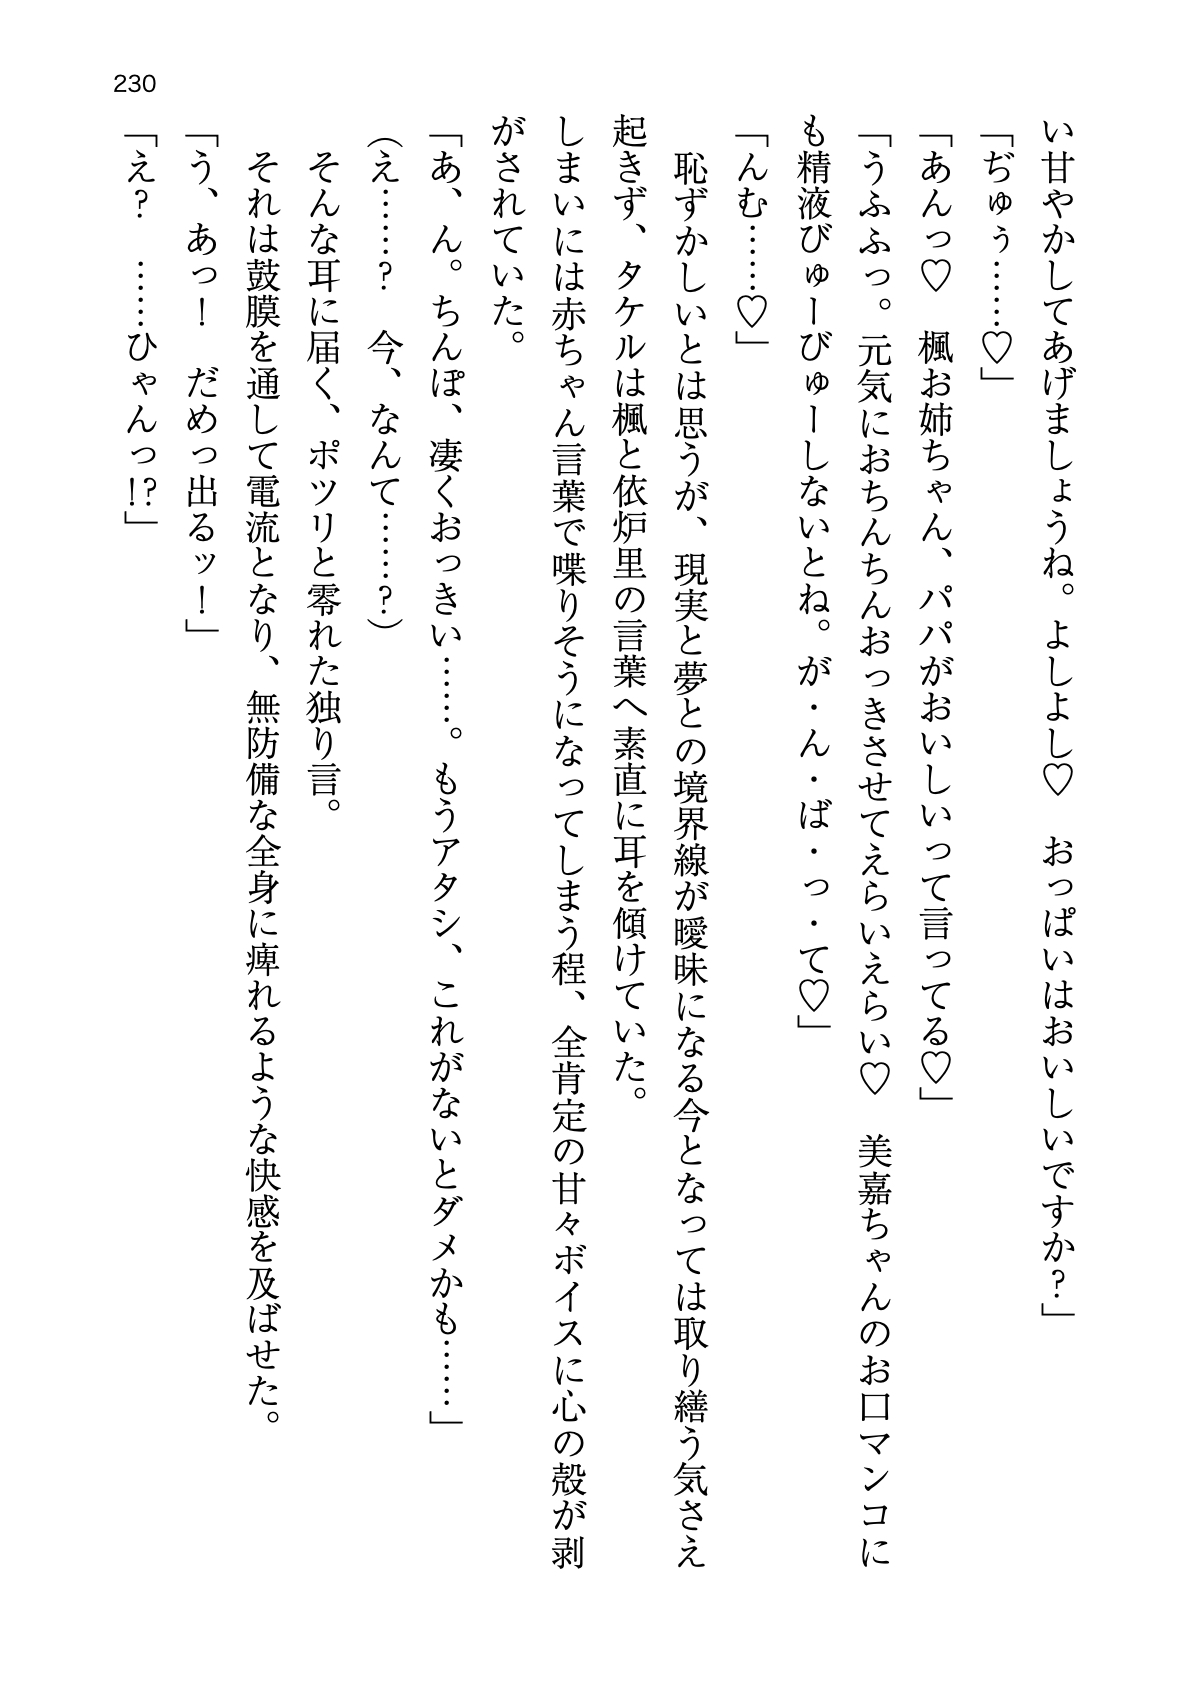 230
い甘やかしてあげましょうね。よしよし♡　おっぱいはおいしいですか？」
「ぢゅぅ……♡」
「あんっ♡　楓お姉ちゃん、パパがおいしいって言ってる♡」
「うふふっ。元気におちんちんおっきさせてえらいえらい♡　美嘉ちゃんのお口マンコに
も精液びゅーびゅーしないとね。が・ん・ば・っ・て♡」
「んむ……♡」
　恥ずかしいとは思うが、現実と夢との境界線が曖昧になる今となっては取り繕う気さえ
起きず、タケルは楓と依炉里の言葉へ素直に耳を傾けていた。
しまいには赤ちゃん言葉で喋りそうになってしまう程、全肯定の甘々ボイスに心の殻が剥
がされていた。
「あ、ん。ちんぽ、凄くおっきい……。もうアタシ、これがないとダメかも……」
（え……？　今、なんて……？）
　そんな耳に届く、ポツリと零れた独り言。
　それは鼓膜を通して電流となり、無防備な全身に痺れるような快感を及ばせた。
「う、あっ！　だめっ出るッ！」
「え？　……ひゃんっ!?」